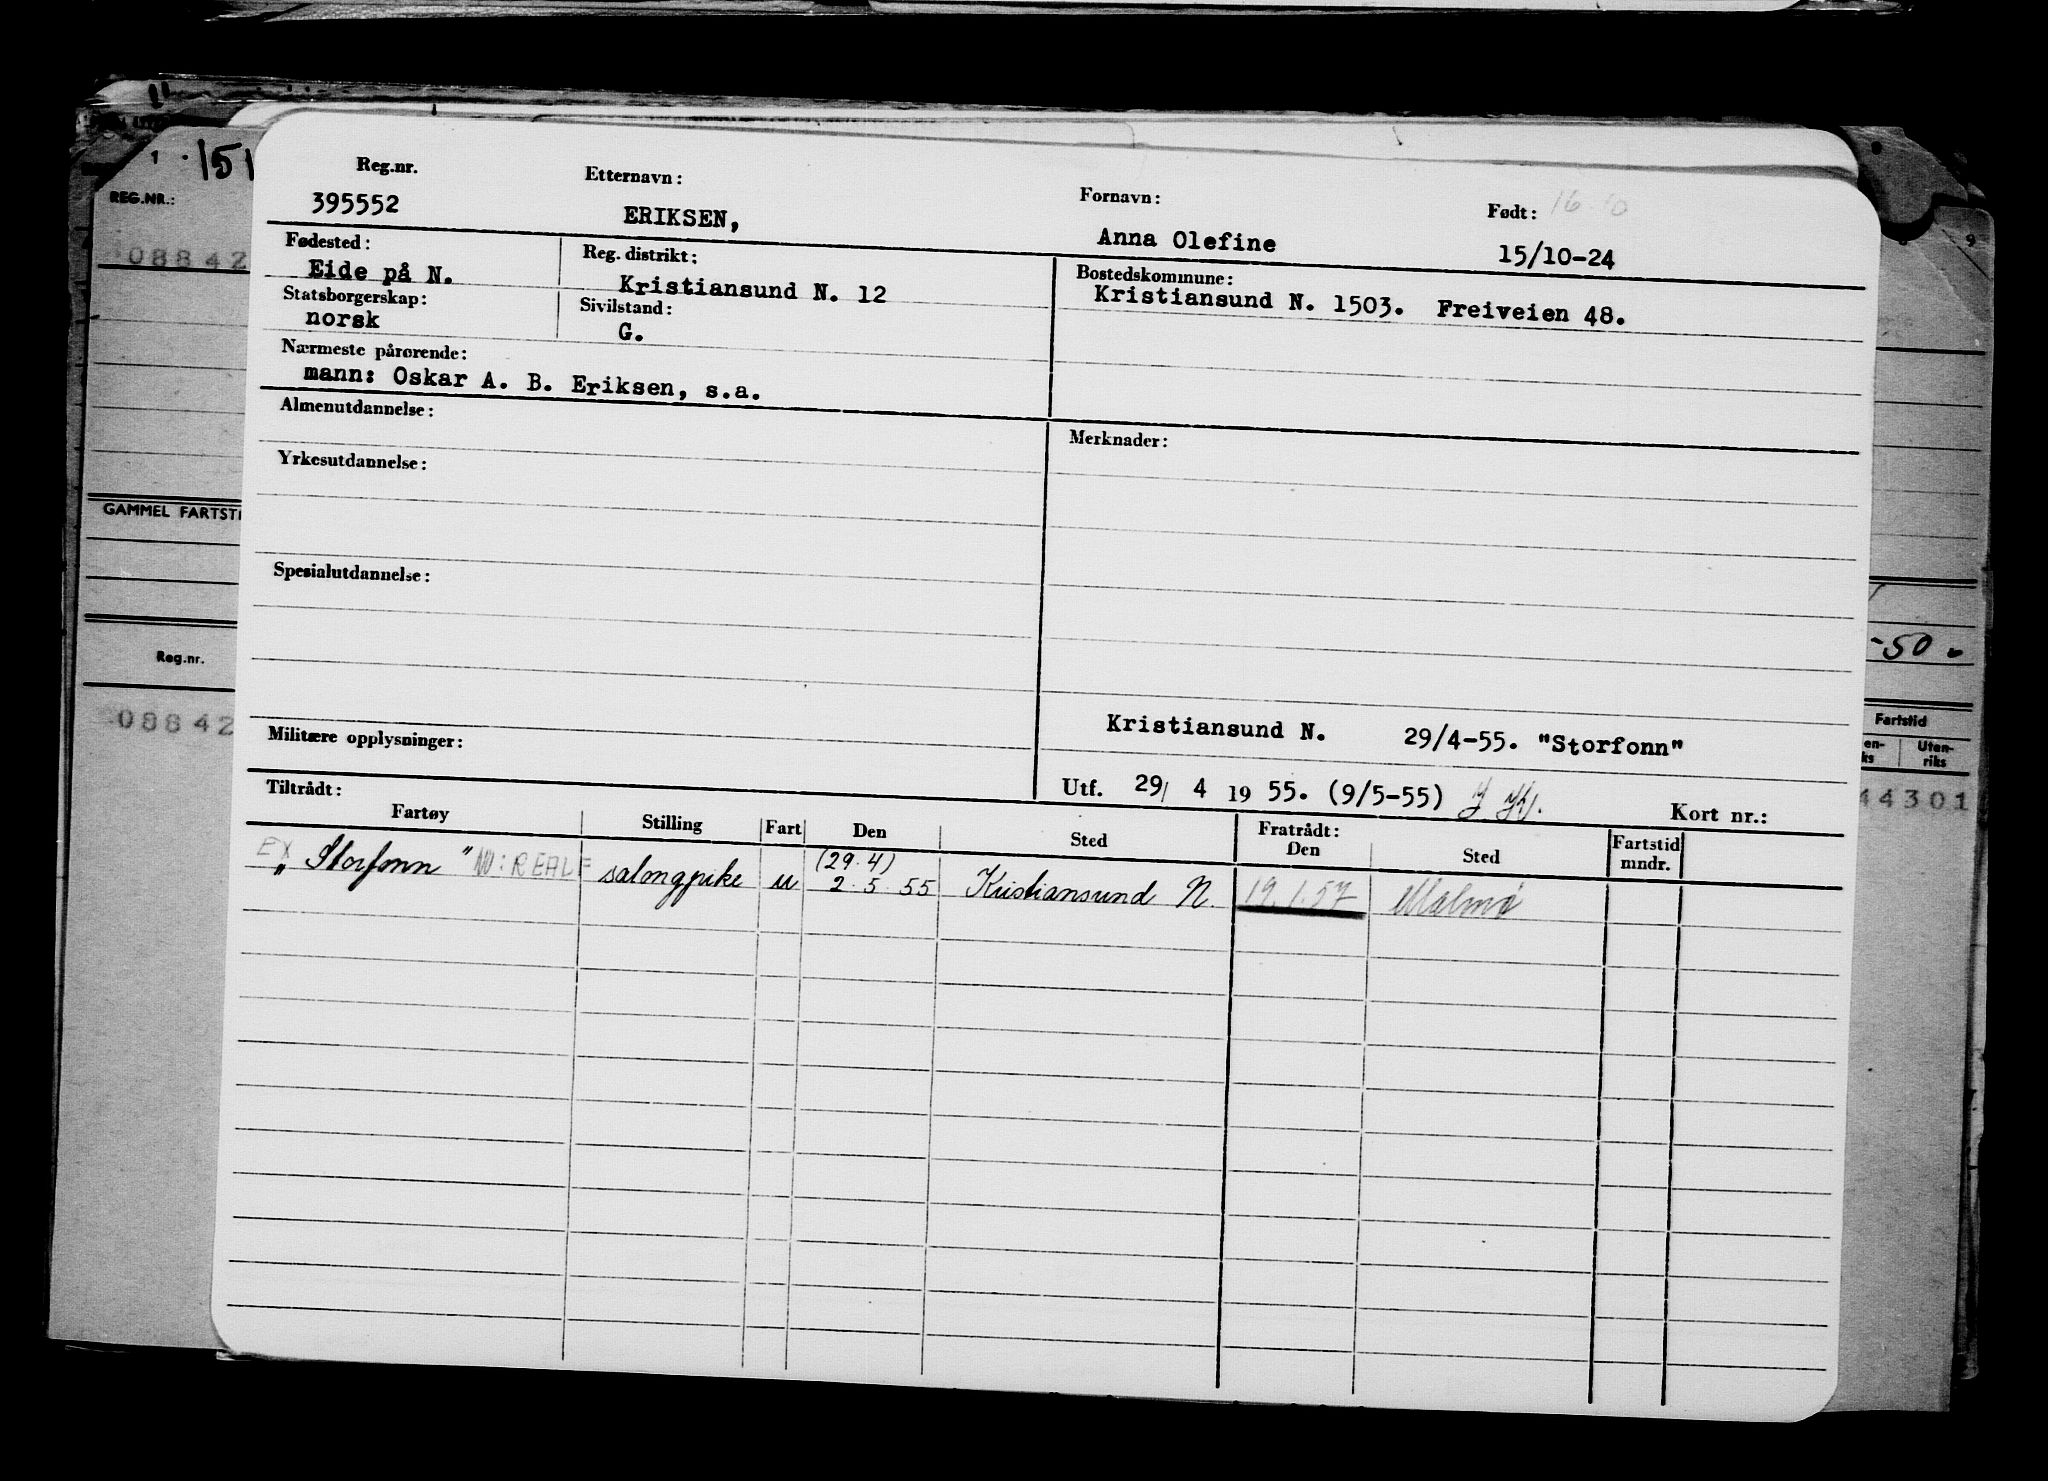 1 · 151
REG.NR.:
08842
GAMMEL FARTSTI
Reg.nr.
08842
Reg.nr. Etternavn: Fornavn: Født: 16.10
395552 ERIKSEN, Anna Olefine 15/10-24
Fødested: Reg. distrikt: Bostedskommune:
Eide på N. Kristiansund N. 12 Kristiansund N. 1503. Freiveien 48.
Statsborgerskap: Sivilstand:
norsk G.
Nærmeste pårørende:
mann: Oskar A. B. Eriksen, s.a.
Almenutdannelse: Merknader:
Yrkesutdannelse:
Spesialutdannelse:
Kristiansund N. 29/4-55. "Storfonn"
Militære opplysninger:
Utf. 29/ 4 19 55. (9/5-55)
Tiltrådt: Kort nr.:
Fartøy Stilling Fart Den Sted Fratrådt: Den Sted Fartstid mndr.
EX (29.4)
"Storfonn" NÅ: REALF salongpike u 2.5.55 Kristiansund N. 19.1.57 Malmø
9
-50.
Fartstid
en- Uten-
ks riks
44301